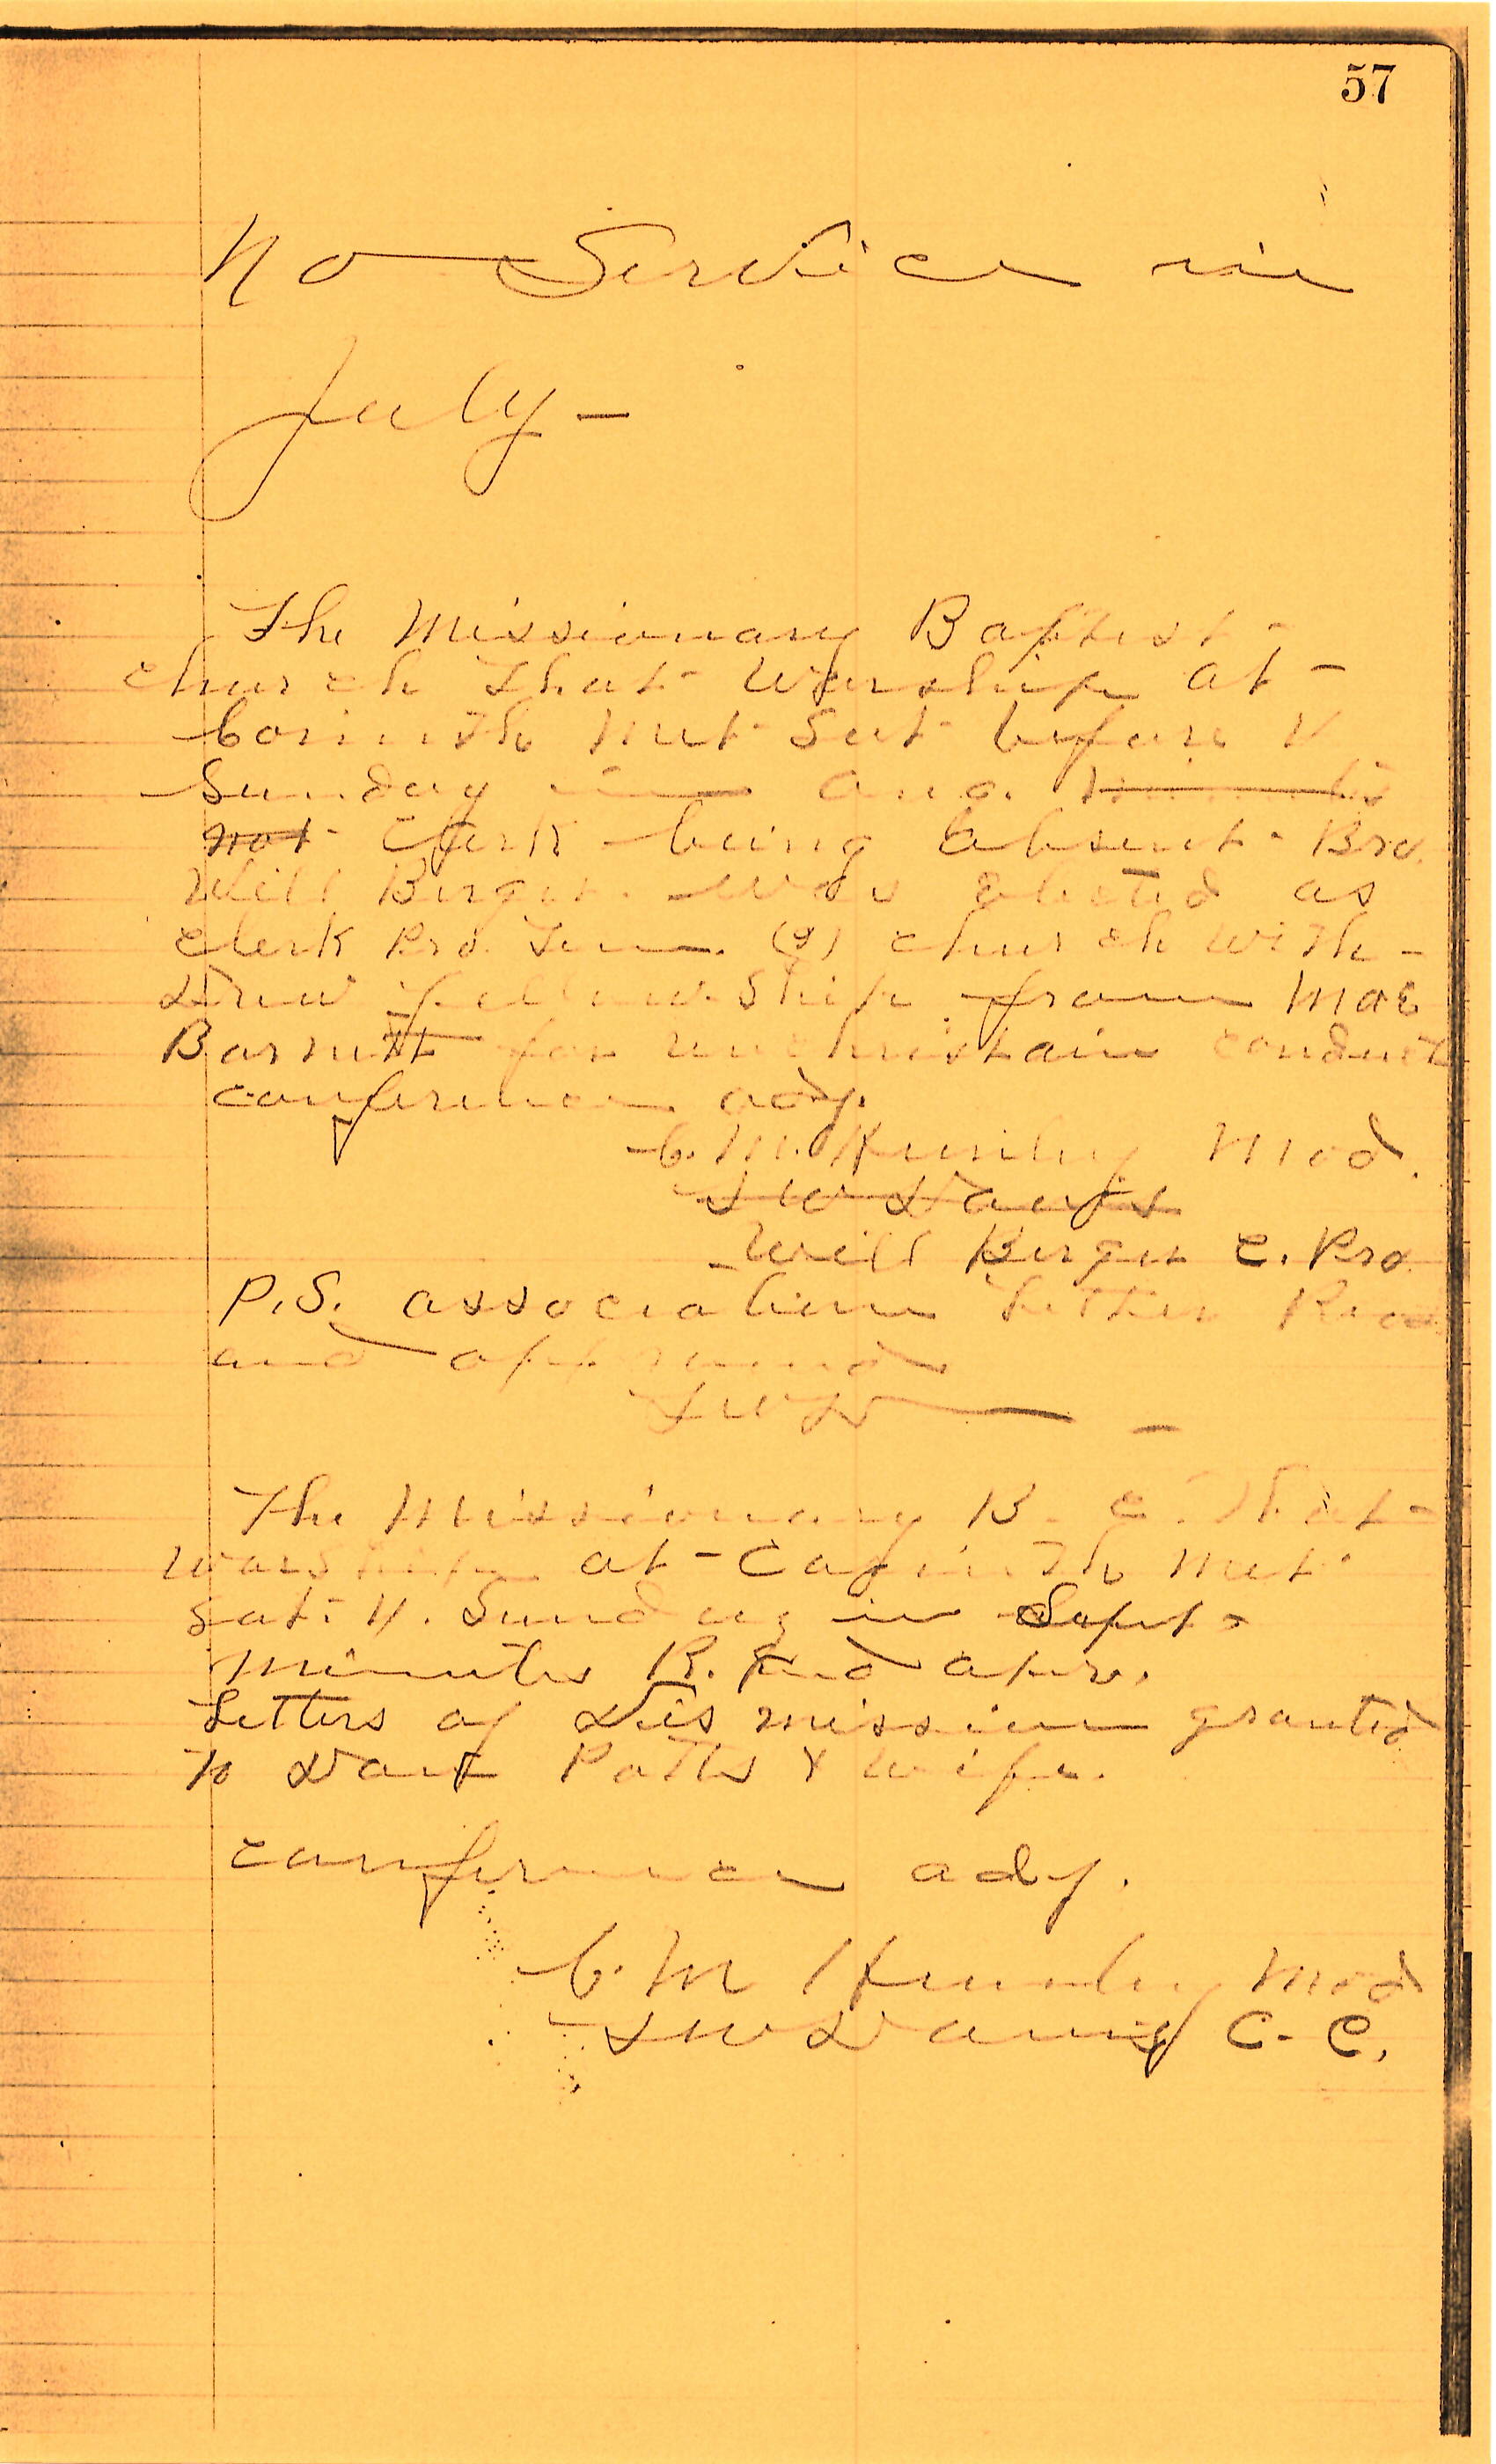 57
No Service in
July -
The Missionary Baptist
church that worship at
Corinth met Sat before 4
Sunday in Aug.
not Clerk being absent Bro.
Will was elected as
clerk Pro. Tem. (2) church with-
drew fellowship from Mae
Barnett for unchristain conduct
conference adj.
C. M. Mod.
J W Davis
Will C. Pro
P.S. association Letter Read
and approved
J W D
The Missionary B. C. that
worship at Corinth met
Sat. 4. Sunday in Sept
minutes R. and aprv.
Letters of Dismission granted
to Dave Potts & wife.
conference adj.
C. M Mod
J W Davis C. C.